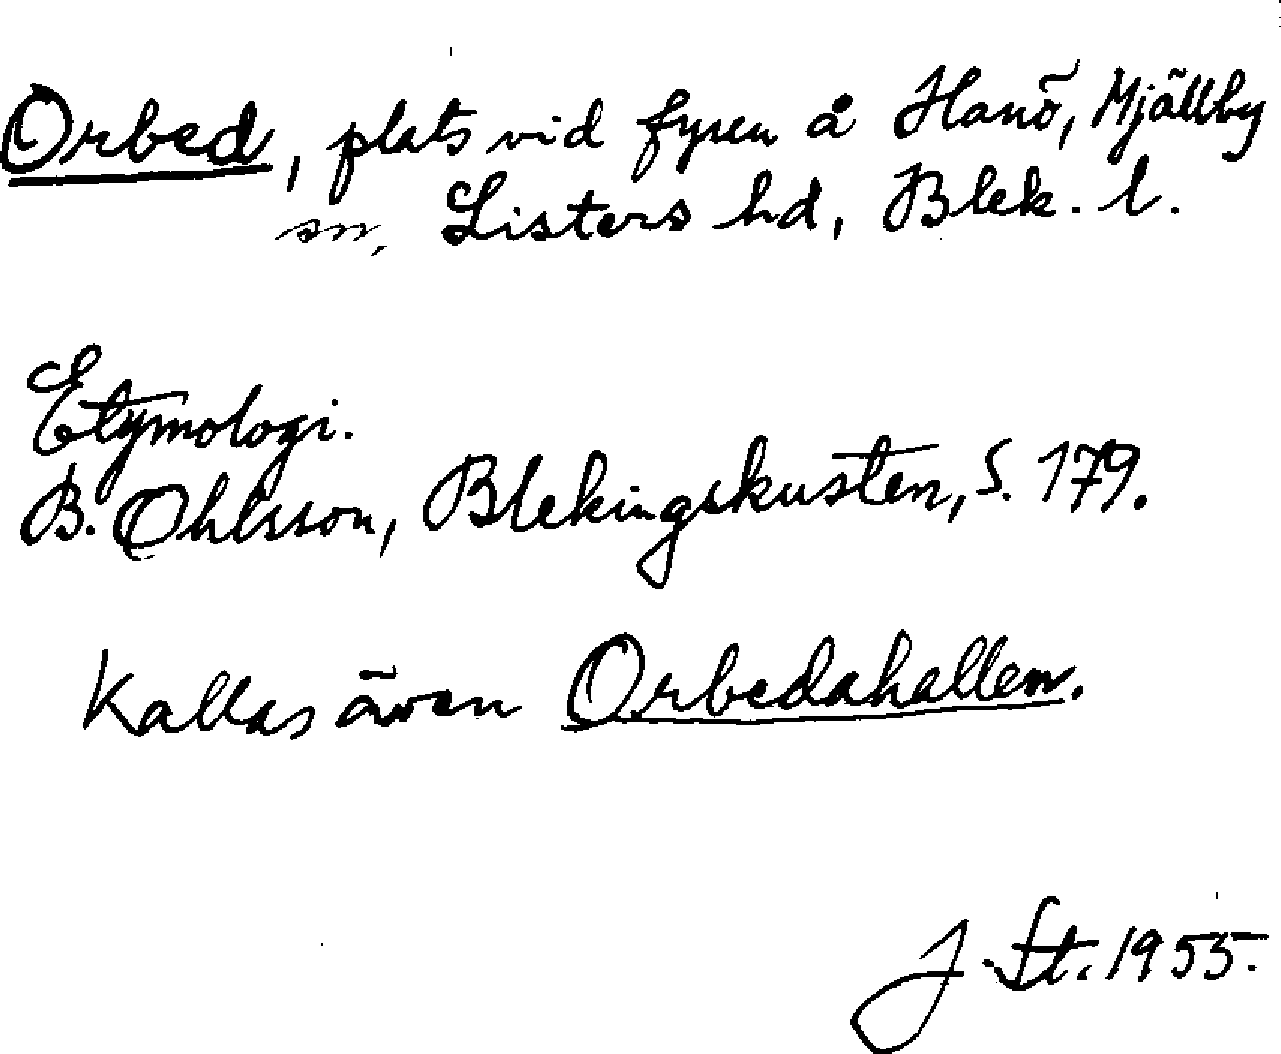 Orbed, plats vid fyren å Hanö, Mjällby
sn, Listers hd, Blek. l.
Etymologi.
B. Ohlsson, Blekingskusten, S. 179.
Kallas även Orbedahallen.
J. St. 1955.